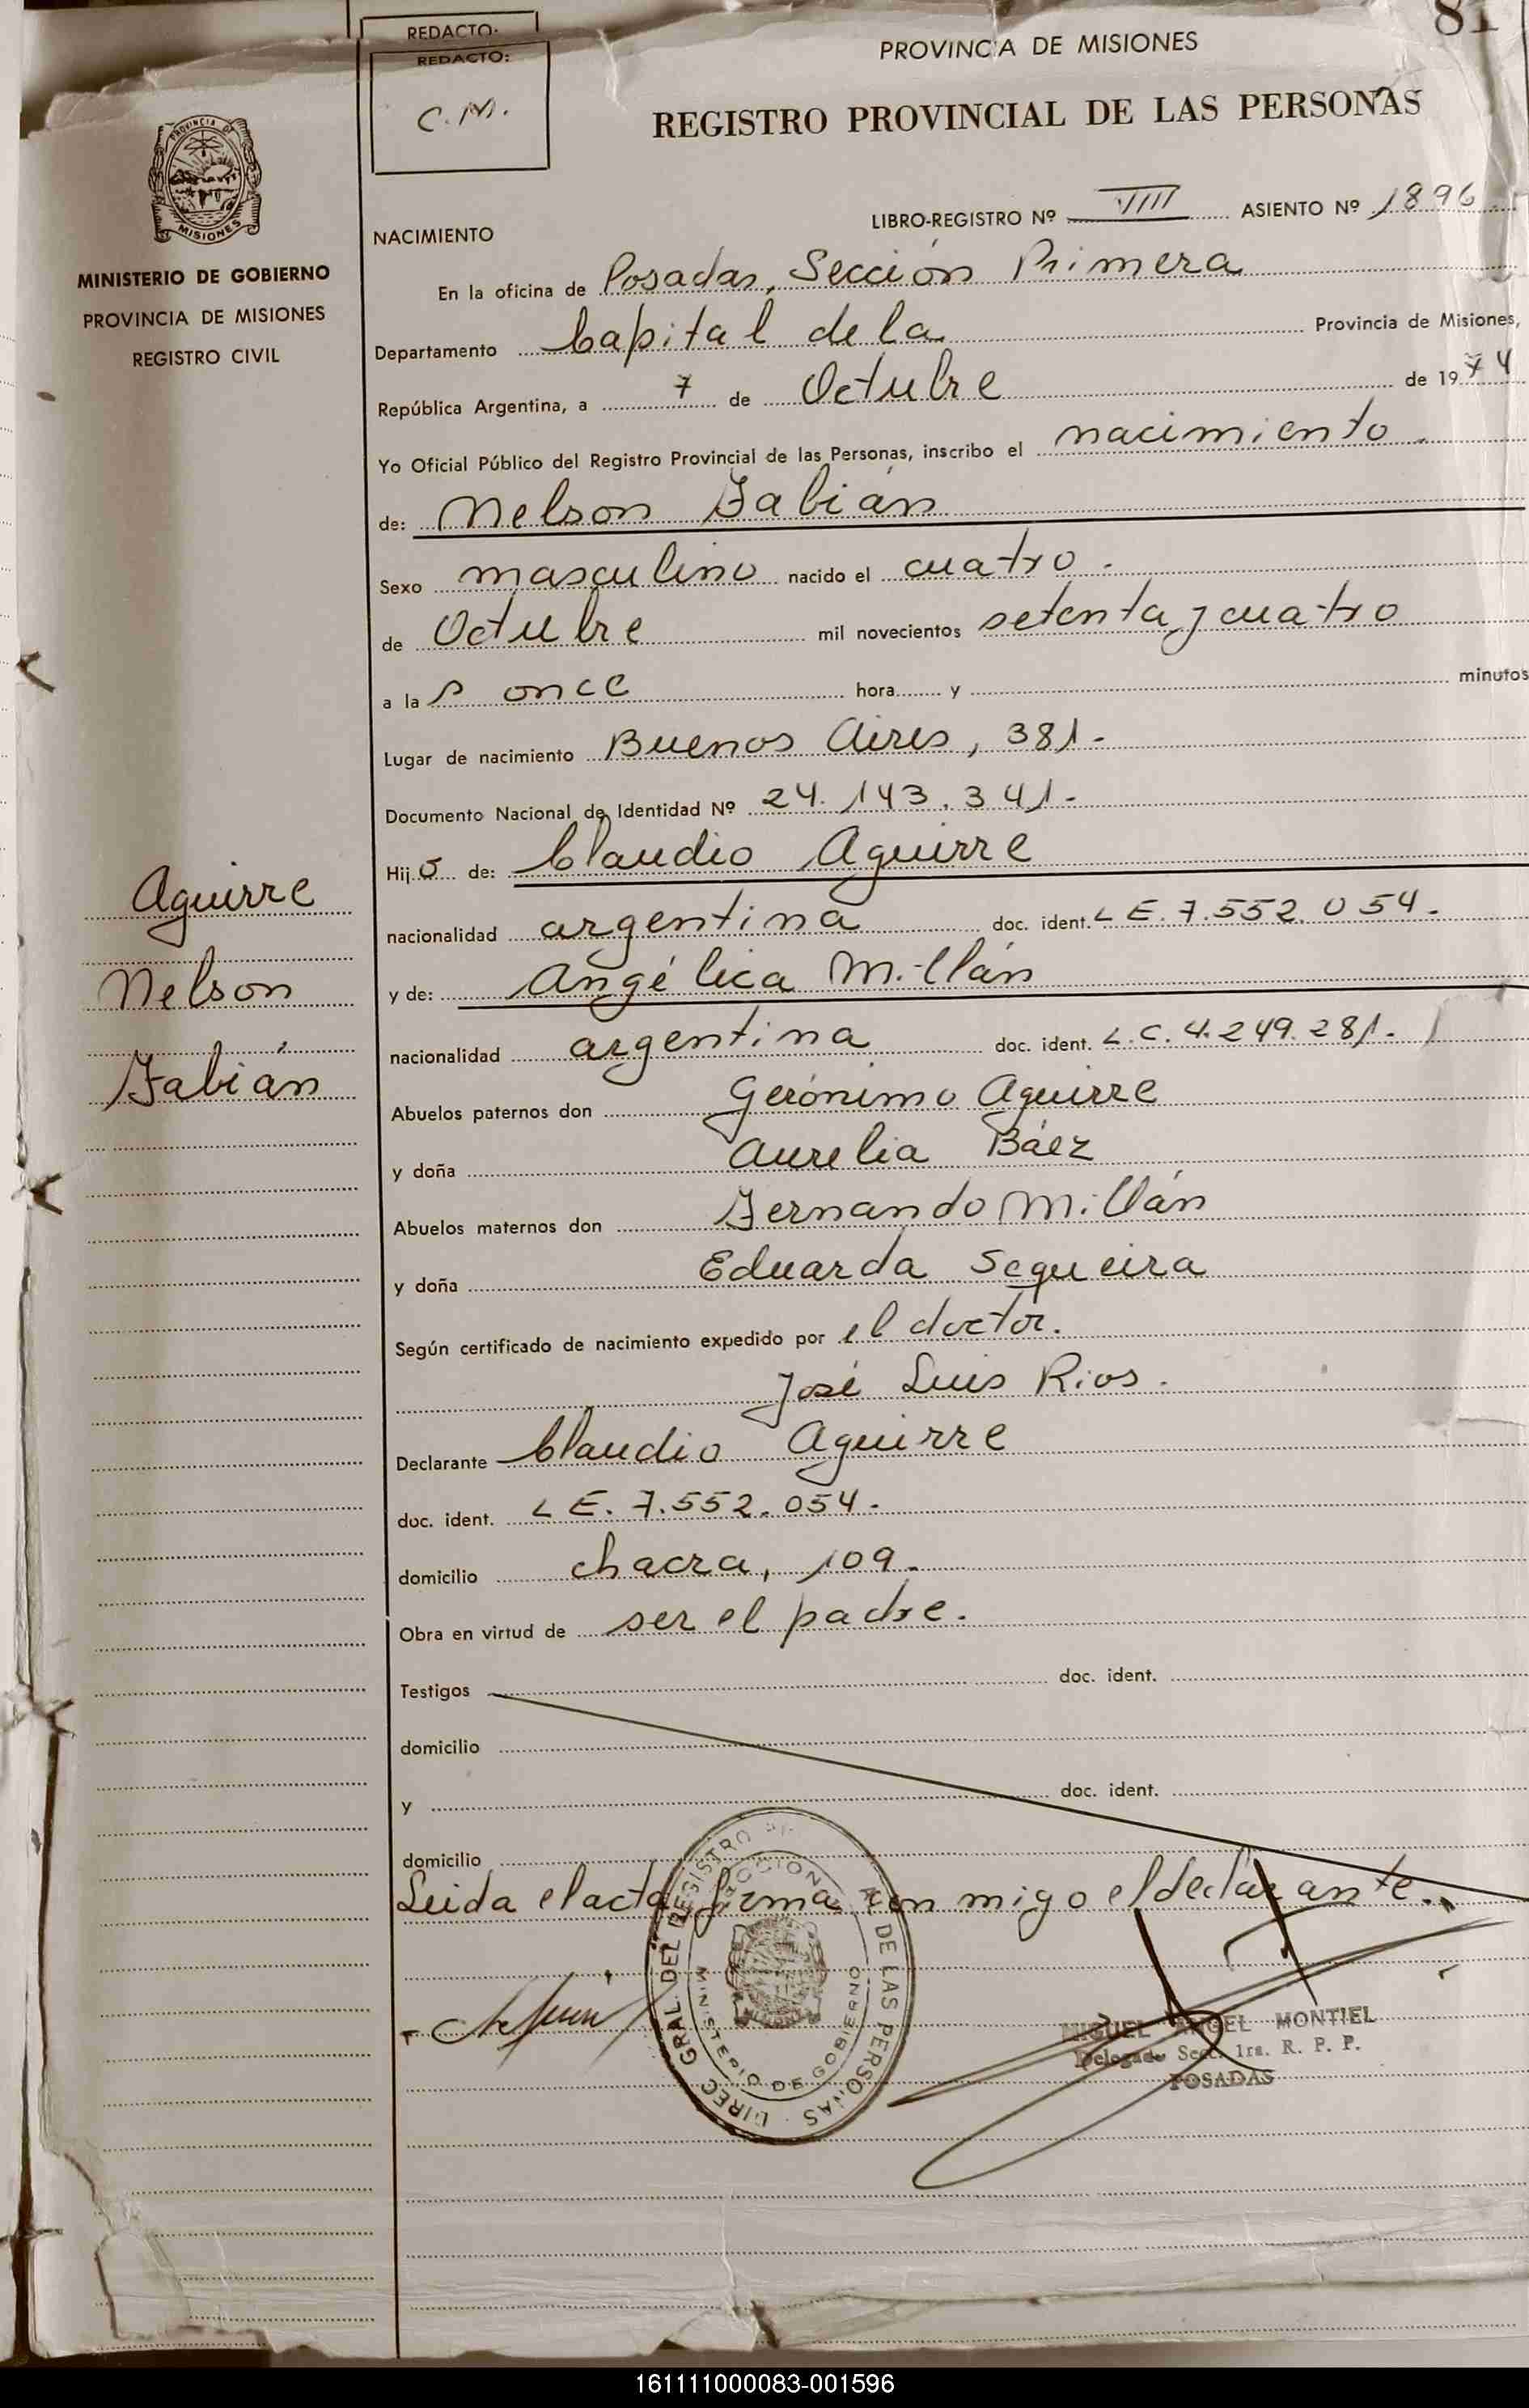 REDACTO:
REDACTO:
C. M.
PROVINCIA DE MISIONES
81
REGISTRO PROVINCIAL DE LAS PERSONAS
PROVINCIA DE
MISIONES
MINISTERIO DE GOBIERNO
PROVINCIA DE MISIONES
REGISTRO CIVIL
NACIMIENTO
LIBRO-REGISTRO Nº VIII ASIENTO Nº 1896
En la oficina de Posadas, Sección Primera
Departamento Capital de la Provincia de Misiones,
República Argentina, a 7 de Octubre de 1974
Yo Oficial Público del Registro Provincial de las Personas, inscribo el nacimiento
de: Nelson Fabián
Sexo masculino nacido el cuatro
de Octubre mil novecientos setenta y cuatro
a las once hora y minutos
Lugar de nacimiento Buenos Aires, 381.-
Documento Nacional de Identidad Nº 24.143.341.-
Hijo de: Claudio Aguirre
nacionalidad argentina doc. ident. L E. 7.552.054.
y de: Angélica Millán
nacionalidad argentina doc. ident. L.C. 4.249.281.
Abuelos paternos don Gerónimo Aguirre
y doña Aurelia Báez
Abuelos maternos don Fernando Millán
y doña Eduarda Sequeira
Según certificado de nacimiento expedido por el doctor.
José Luis Rios.
Declarante Claudio Aguirre
doc. ident. L E. 7.552.054.
domicilio chacra, 109.
Obra en virtud de ser el padre.
Testigos doc. ident.
domicilio
y doc. ident.
domicilio
Leida el acta, firma con migo el declarante.
Aguirre
Nelson
Fabián
DIREC. GRAL. DEL REGISTRO DE LAS PERSONAS
MINISTERIO DE GOBIERNO
MIGUEL ANGEL MONTIEL
Delegado Secc. 1ra. R. P. P.
POSADAS
161111000083-001596